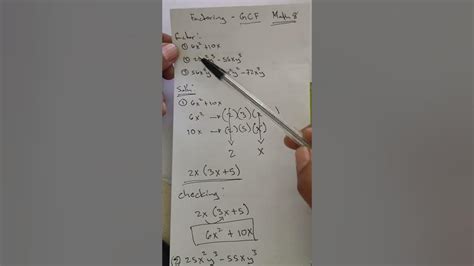 Factoring - GCF Math 8
Factor:
① 6x² + 10x
② y³ - 55xy³
③ 56x²y - 72x³y
Soln:
① 6x² + 10x
6x² → (2)(3)(x
10x → (2)(5)(x)
2 x
2x (3x+5)
checking:
2x (3x+5)
6x² + 10x
② 25x²y³ - 55xy³